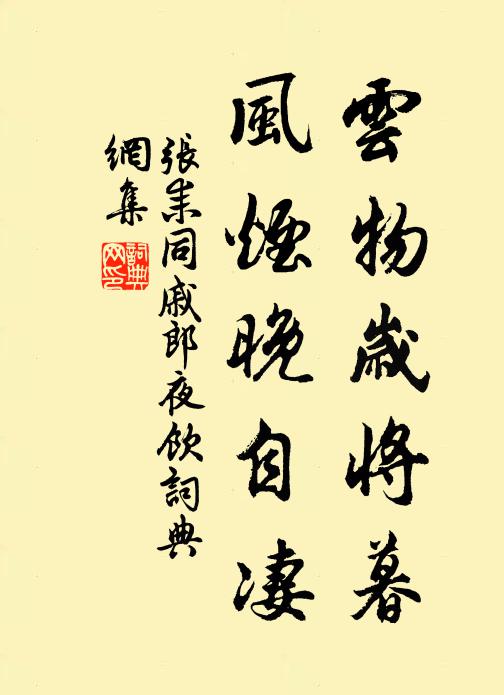 雲物歲將暮
風煙晚自凄
張耒同戚郎夜飲詞典
網集
詞典
网印